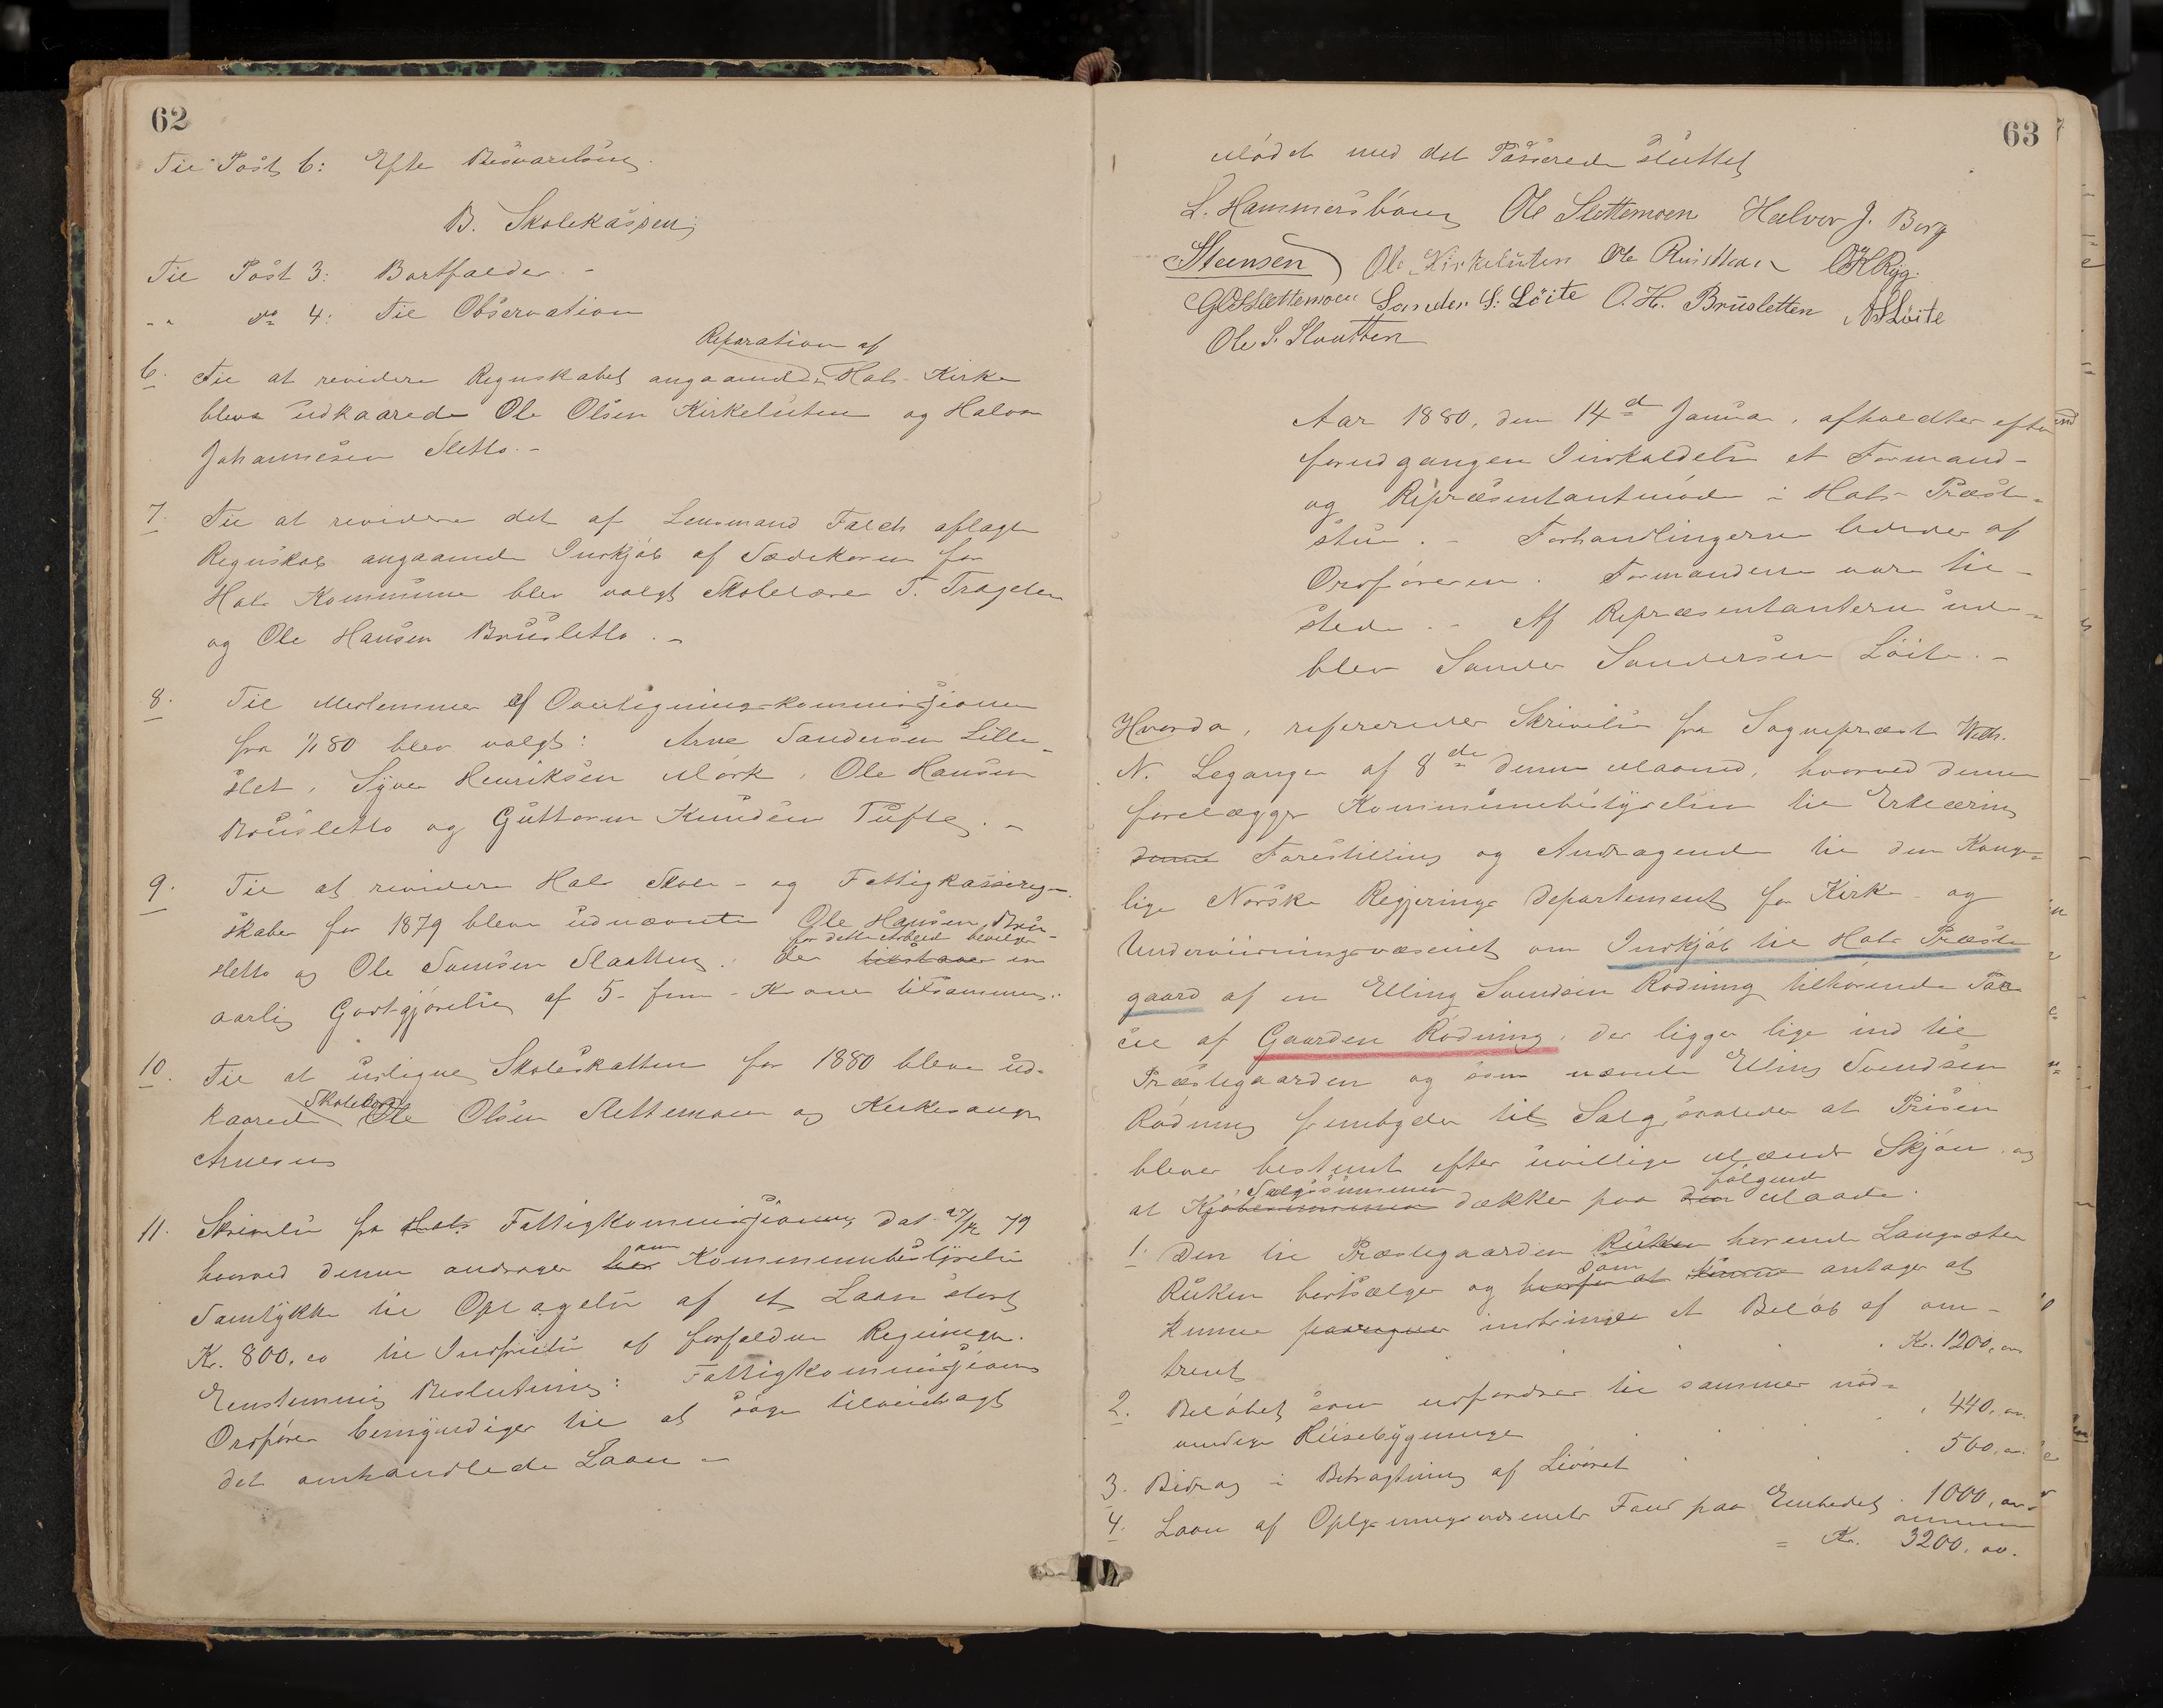 62
Til Post 6: Efter Besvarelsen.
B. Skolekassen;
Til Post 3: Bortfalder. -
- " do 4: Til Observation
Reparation af
6. Til at revidere Regnskabet angaaende Hols Kirke
bleve udkaarede Ole Olsen Kirkeluten og Halvor
Johannesen Sletto. -
7. Til at revidere det af Lensmand Falch aflagte
Regnskab angaaende Indkjøb af Sædekorn for
Hols Kommune blev valgt Skolelærer T. Trageton
og Ole Hansen Brusletto. -
8. Til Medlemmer af Overligningskommissionen
fra 1/1 80 blev valgt: Arne Sandersen Lille-
slet, Syver Henriksen Mørk, Ole Hansen
Brusletto og Guttorm Knudsen Tufte. -
9. Til at revidere Hols Skole- og Fattigkasseregn-
skaber for 1879 bleve udnævnte Ole Hansen Bru-
for dette Arbeid bevilges
sletto og Ole Svensen Slaatten. der tilstaaes en
aarlig Godtgjørelse af 5 - fem - Kroner tilsammen.
10. Til at udligne Skoleskatten for 1880 bleve ud-
Skolelærer
kaarede Ole Olsen Slettemoen og Kirkesanger
Arnesen
11. Skrivelse fra Hols Fattigkommission, dat. 27/12 79
om
hvorved denne andrager her Kommunebestyrelsens
Samtykke til Optagelse af et Laan stort
Kr. 800,00 til Indfrielse af forfaldne Regninger.
Enstemmig Beslutning: Fattigkommissionens
Ordfører bemyndiges til at søge tilveiebragt
det omhandlede Laan -
63
Mødet med det Passerede sluttet
L. Hammersbøen Ole Slettemoen Halvor J. Berg
Steensen Ole Kirkeluten Ole
G O Slettemoen Sander S. Löite O. H. Brusletten A S Löite
Ole S. Slaatten
Aar 1880, den 14de Januar, afholdtes efter
forudgangen Indkaldelse et Formand-
og Repræsentantmøde i Hols Præste-
stue. - Forhandlingerne lededes af
Ordføreren. Formændene vare til-
stede. - Af Repræsentanterne ude-
blev Sander Sandersen Löite. -
Hvorda, refereredes Skrivelse fra Sogneprest Wilh.
N. Leganger af 8de denne Maaned, hvorved denne
forelægger Kommunebestyrelsen til Erklæring
denne Forestilling og Andragende til den Konge-
lige Norske Regjerings Departement for Kirke- og
Underviisningsvæsenet om Indkjøb til Hols Præste-
gaard af en Elling Svendsen Rødning tilhørende Par-
cel af Gaarden Rødning, der ligger lige ind til
Præstegaarden og som nævnte Elling Svendsen
Rødning frembyder til Salg, saaledes at Prisen
bliver bestemt efter uvillige Mænds Skjøn, og
Salgssummen følgende
at Kjøbesummen dækkes paa den Maade.
1. Den til Præstegaarden Ruken hørende Langsæter
som
Ruken bortsælges og hvorfor at kunne antages at
kunne paaregnes indbringe et Beløb af om-
trent . . . Kr. 1200,00
2. Beløbet som udfordres til sammes nød-
vendige Huusebygninger . . . 440,00
3. Bidrag i Betragtning af Livøret . . . 560,00
4. Laan af Oplysningsvæsenets Fond paa Embedet . 1000,00
= Kr. 3200,00.